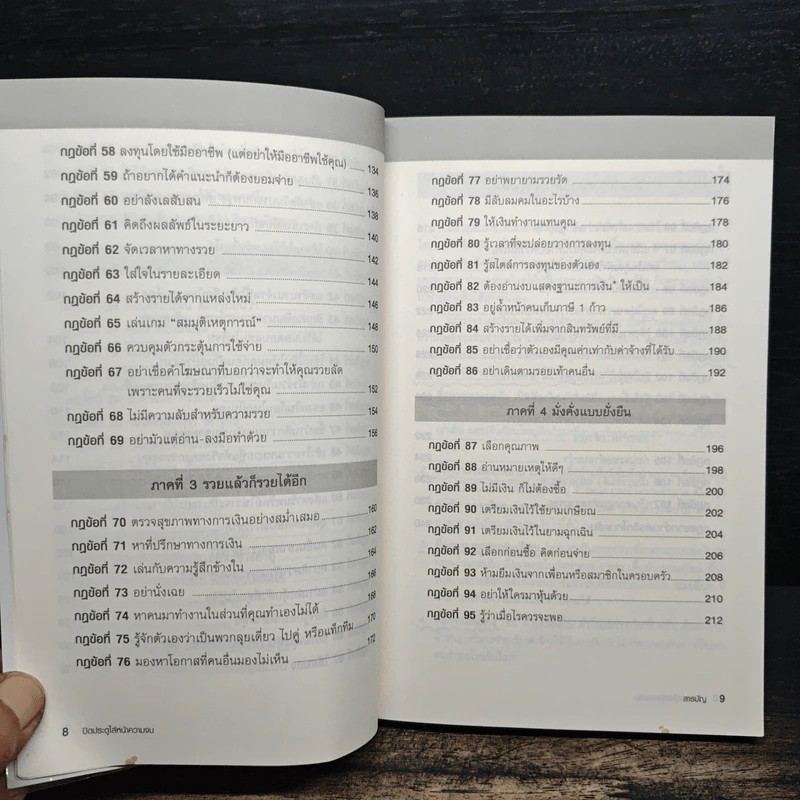 กฎข้อที่ 58 ลงทุนโดยใช้มืออาชีพ (แต่อย่าให้มืออาชีพใช้คุณ) 134
กฎข้อที่ 59 ถ้าอยากได้คำแนะนำก็ต้องยอมจ่าย 136
กฎข้อที่ 60 อย่าลังเลสับสน 138
กฎข้อที่ 61 คิดถึงผลลัพธ์ในระยะยาว 140
กฎข้อที่ 62 จัดเวลาหาทางรวย 142
กฎข้อที่ 63 ใส่ใจในรายละเอียด 144
กฎข้อที่ 64 สร้างรายได้จากแหล่งใหม่ 146
กฎข้อที่ 65 เล่นเกม “สมมุติเหตุการณ์” 148
กฎข้อที่ 66 ควบคุมตัวกระตุ้นการใช้จ่าย 150
กฎข้อที่ 67 อย่าเชื่อคำโฆษณาที่บอกว่าจะทำให้คุณรวยลัด
เพราะคนที่จะรวยเร็วไม่ใช่คุณ 152
กฎข้อที่ 68 ไม่มีความลับสำหรับความรวย 154
กฎข้อที่ 69 อย่ามัวแต่อ่าน-ลงมือทำด้วย 156
ภาคที่ 3 รวยแล้วก็รวยได้อีก
กฎข้อที่ 70 ตรวจสุขภาพทางการเงินอย่างสม่ำเสมอ 160
กฎข้อที่ 71 หาที่ปรึกษาทางการเงิน 162
กฎข้อที่ 72 เล่นกับความรู้สึกข้างใน 164
กฎข้อที่ 73 อย่านั่งเฉย 166
กฎข้อที่ 74 หาคนมาทำงานในส่วนที่คุณทำเองไม่ได้ 168
กฎข้อที่ 75 รู้จักตัวเองว่าเป็นพวกลุยเดี่ยว ไปคู่ หรือแท็กทีม 170
กฎข้อที่ 76 มองหาโอกาสที่คนอื่นมองไม่เห็น 172
8 ปิดประตูใส่หน้าความจน
กฎข้อที่ 77 อย่าพยายามรวยรัด 174
กฎข้อที่ 78 มีลับลมคมในอะไรบ้าง 176
กฎข้อที่ 79 ให้เงินทำงานแทนคุณ 178
กฎข้อที่ 80 รู้เวลาที่จะปล่อยวางการลงทุน 180
กฎข้อที่ 81 รู้สไตล์การลงทุนของตัวเอง 182
กฎข้อที่ 82 ต้องอ่านงบแสดงฐานะการเงิน* ให้เป็น 184
กฎข้อที่ 83 อยู่ล้ำหน้าคนเก็บภาษี 1 ก้าว 186
กฎข้อที่ 84 สร้างรายได้เพิ่มจากสินทรัพย์ที่มี 188
กฎข้อที่ 85 อย่าเชื่อว่าตัวเองมีคุณค่าเท่ากับค่าจ้างที่ได้รับ 190
กฎข้อที่ 86 อย่าเดินตามรอยเท้าคนอื่น 192
ภาคที่ 4 มั่งคั่งแบบยั่งยืน
กฎข้อที่ 87 เลือกคุณภาพ 196
กฎข้อที่ 88 อ่านหมายเหตุให้ดีๆ 198
กฎข้อที่ 89 ไม่มีเงิน ก็ไม่ต้องซื้อ 200
กฎข้อที่ 90 เตรียมเงินไว้ใช้ยามเกษียณ 202
กฎข้อที่ 91 เตรียมเงินไว้ในยามฉุกเฉิน 204
กฎข้อที่ 92 เลือกก่อนซื้อ คิดก่อนจ่าย 206
กฎข้อที่ 93 ห้ามยืมเงินจากเพื่อนหรือสมาชิกในครอบครัว 208
กฎข้อที่ 94 อย่าให้ใครมาหุ้นด้วย 210
กฎข้อที่ 95 รู้ว่าเมื่อไรควรจะพอ 212
สารบัญ 9